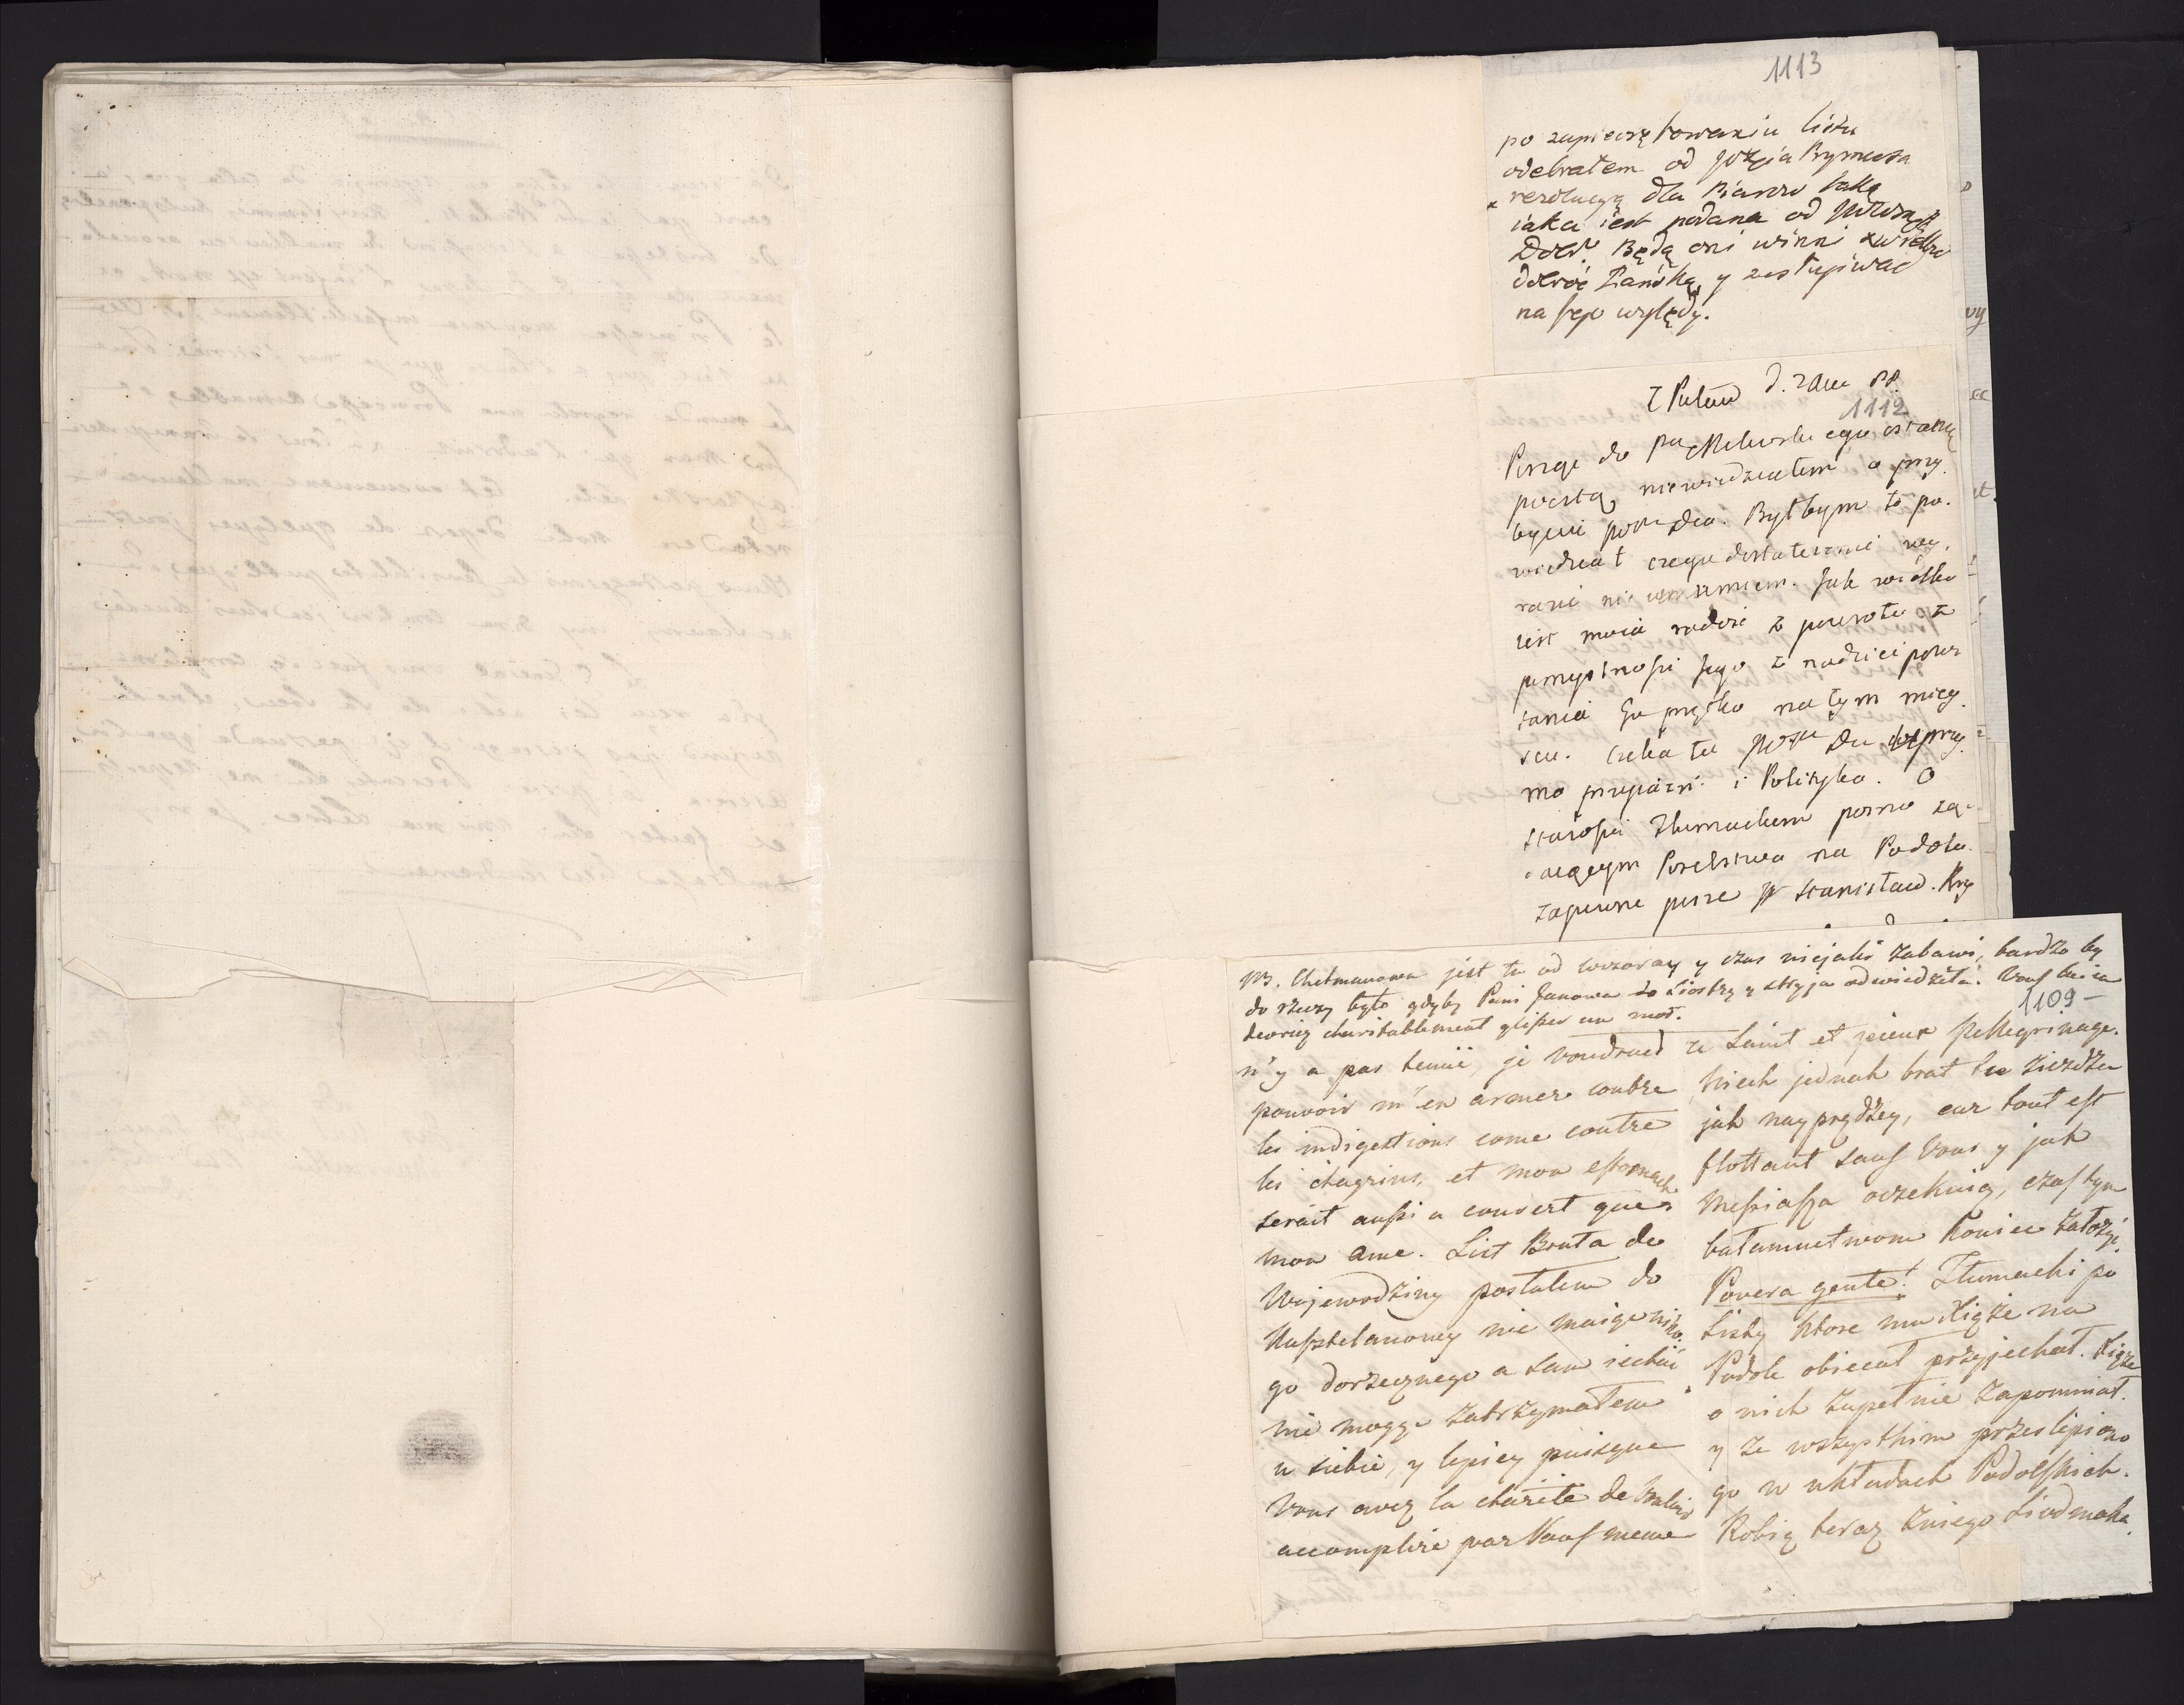 1113
po zapieczętowaniu listu
odebrałem od
rezolucyą dla Piarow taką
iaka iest podana od
Dobr. Będą oni winni
dobroć Pańską, y zasługiwać
na Jego względy.
Z Puław d. 88.
1112
Piszę do Pa ostatnią
pocztą niewiedziałem o przy-
byciu Dca. Byłbym to po-
wiedział czego dostatecznie wy-
razić nie umiem. Jak wielka
iest moia radość z powrotu z
pomyślności Jego z nadziei
Go prętko na tym miey-
scu. Czeka tu Da
mo przyiaźń i Polityka. O
Starości Tłumackim pomo
Poselstwa na Podolu
zapewne pisze X Stanisław.
NB. Chetmanowa jest tu od wczoray y czas niejaki zabawi, bardzo by
do rzeczy było gdyby Pani Janowa do Siostry y stryja odwiedziła. Vous
devriez charitablement glisser un mot.
1109 -
n'y a pas tenue, je voudrais
pouvoir m'en armer contre
les indigestions come contre
les chagrins, et mon estomach
serait aussi a couvert que
mon ame. List Brata do
Wojewodziny posłałem do
Kasztelanowey nie maiąc niko-
go dorzecznego a sam iechać
nie mogąc zatrzymałem
u siebie, y lepiey puisque
Vous avez la charité de vouloir
accomplire par Vous meme
ce Saint et pieux pellegrinage.
Niech jednak brat tu ziezdza
jak nayprędzey, car tout est
flottant sauf Vous y jak
Messiasza oczekuią, czas tym
bałamuctwom koniec założyć.
Povera gente! Tłumacki po
Listy ktore mu Xiąże na
Podole obiecał przyjechał. Xiąże
o nich zupełnie zapomniał.
y ze wszystkim prześlepiono
go w układach Podolskich.
Robią teraz zniego Siodmaka.